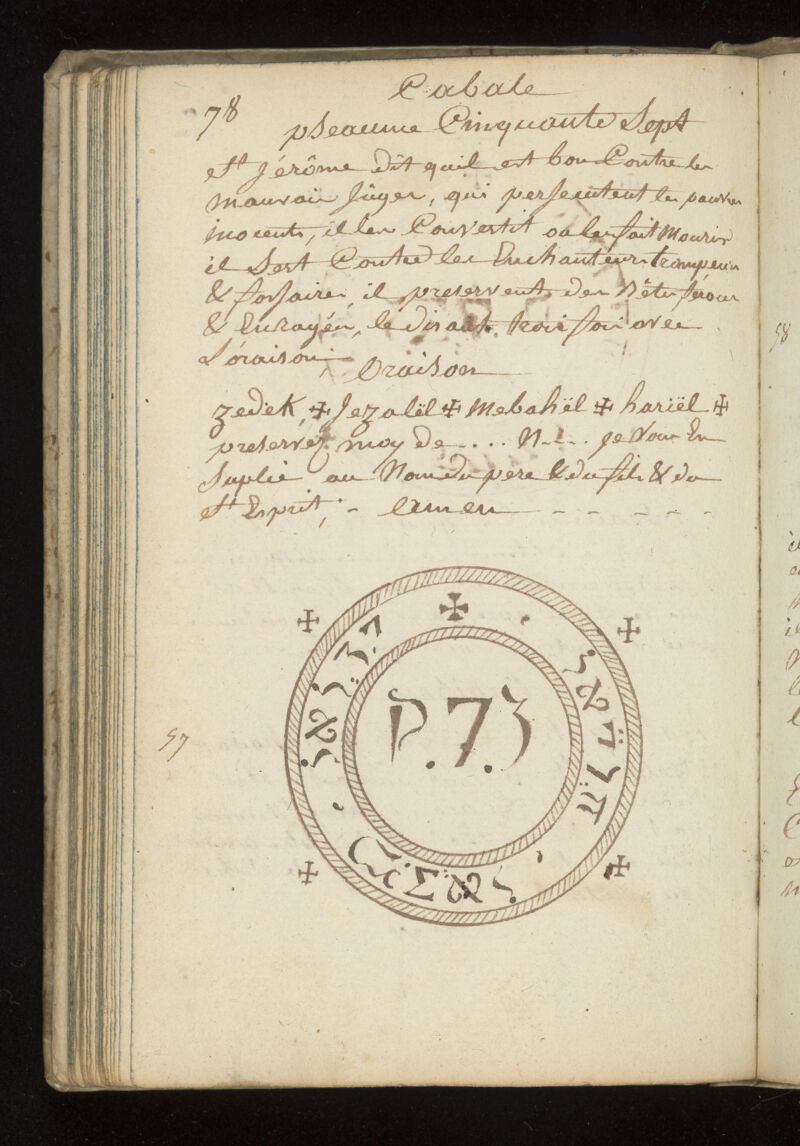 Cabale
78
pseaume Cinquante Sept
st jérôme dit quil est bon Contre les
mauvais Juges, qui persecutent les pauvres
inocents, il les Convertit ou les fait Mourir
il Sert Contre les Enchanteurs trompeurs
& forfaires, il preservent des Bêtes feroces
& Enragées, le disant trois fois avec
L'oraison,
Oraison
zedek, ✠ Jezalël ✠ Mebahël ✠ hariël ✠
preservez moy de .... N... je Vous En
Suplie au Nom du pere & du fils & du
st Esprit; - amen - - - - -
57
P.7.3
58